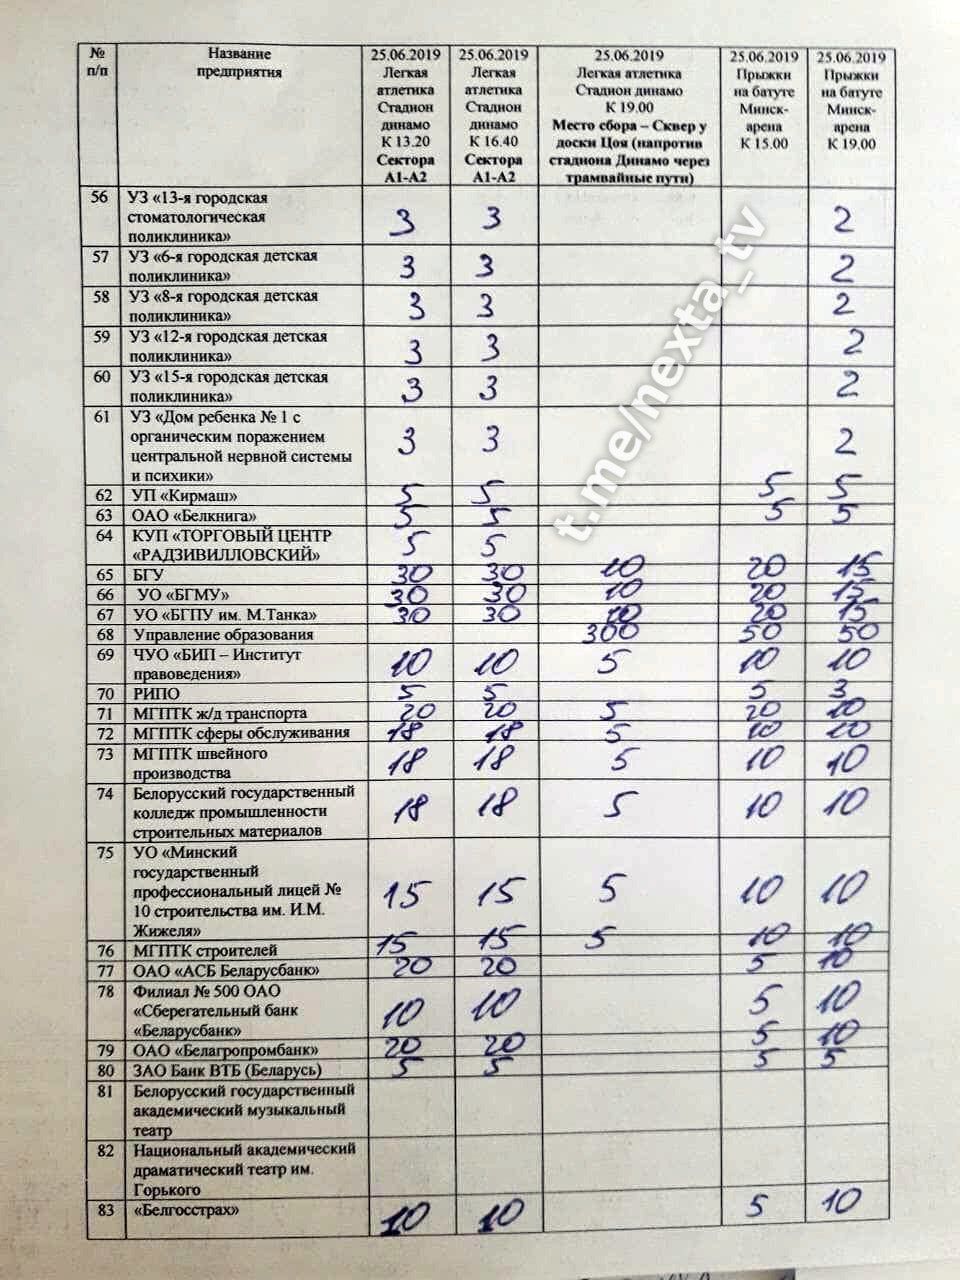 № п/п | Название предприятия | 25.06.2019 Легкая атлетика Стадион динамо К 13.20 Сектора А1-А2 | 25.06.2019 Легкая атлетика Стадион динамо К 16.40 Сектора А1-А2 | 25.06.2019 Легкая атлетика Стадион динамо К 19.00 Место сбора – Сквер у доски Цоя (напротив стадиона Динамо через трамвайные пути) | 25.06.2019 Прыжки на батуте Минск-арена К 15.00 | 25.06.2019 Прыжки на батуте Минск-арена К 19.00
56 | УЗ «13-я городская стоматологическая поликлиника» | 3 | 3 | | | 2
57 | УЗ «6-я городская детская поликлиника» | 3 | 3 | | | 2
58 | УЗ «8-я городская детская поликлиника» | 3 | 3 | | | 2
59 | УЗ «12-я городская детская поликлиника» | 3 | 3 | | | 2
60 | УЗ «15-я городская детская поликлиника» | 3 | 3 | | | 2
61 | УЗ «Дом ребенка № 1 с органическим поражением центральной нервной системы и психики» | 3 | 3 | | | 2
62 | УП «Кирмаш» | 5 | 5 | | 5 | 5
63 | ОАО «Белкнига» | 5 | 5 | | 5 | 5
64 | КУП «ТОРГОВЫЙ ЦЕНТР «РАДЗИВИЛЛОВСКИЙ» | 5 | 5 | | |
65 | БГУ | 30 | 30 | 10 | 20 | 15
66 | УО «БГМУ» | 30 | 30 | 10 | 20 | 15
67 | УО «БГПУ им. М.Танка» | 30 | 30 | 10 | 20 | 15
68 | Управление образования | | | 300 | 50 | 50
69 | ЧУО «БИП – Институт правоведения» | 10 | 10 | 5 | 10 | 10
70 | РИПО | 5 | 5 | | 5 | 3
71 | МГПТК ж/д транспорта | 20 | 20 | 5 | 20 | 10
72 | МГПТК сферы обслуживания | 18 | 18 | 5 | 10 | 10
73 | МГПТК швейного производства | 18 | 18 | 5 | 10 | 10
74 | Белорусский государственный колледж промышленности строительных материалов | 18 | 18 | 5 | 10 | 10
75 | УО «Минский государственный профессиональный лицей № 10 строительства им. И.М. Жижеля» | 15 | 15 | 5 | 10 | 10
76 | МГПТК строителей | 15 | 15 | 5 | 10 | 10
77 | ОАО «АСБ Беларусбанк» | 20 | 20 | | 5 | 10
78 | Филиал № 500 ОАО «Сберегательный банк «Беларусбанк» | 10 | 10 | | 5 | 10
79 | ОАО «Белагропромбанк» | 20 | 20 | | 5 | 10
80 | ЗАО Банк ВТБ (Беларусь) | 5 | 5 | | 5 | 5
81 | Белорусский государственный академический музыкальный театр
82 | Национальный академический драматический театр им. Горького
83 | «Белгосстрах» | 10 | 10 | | 5 | 10
t.me/nexta_tv